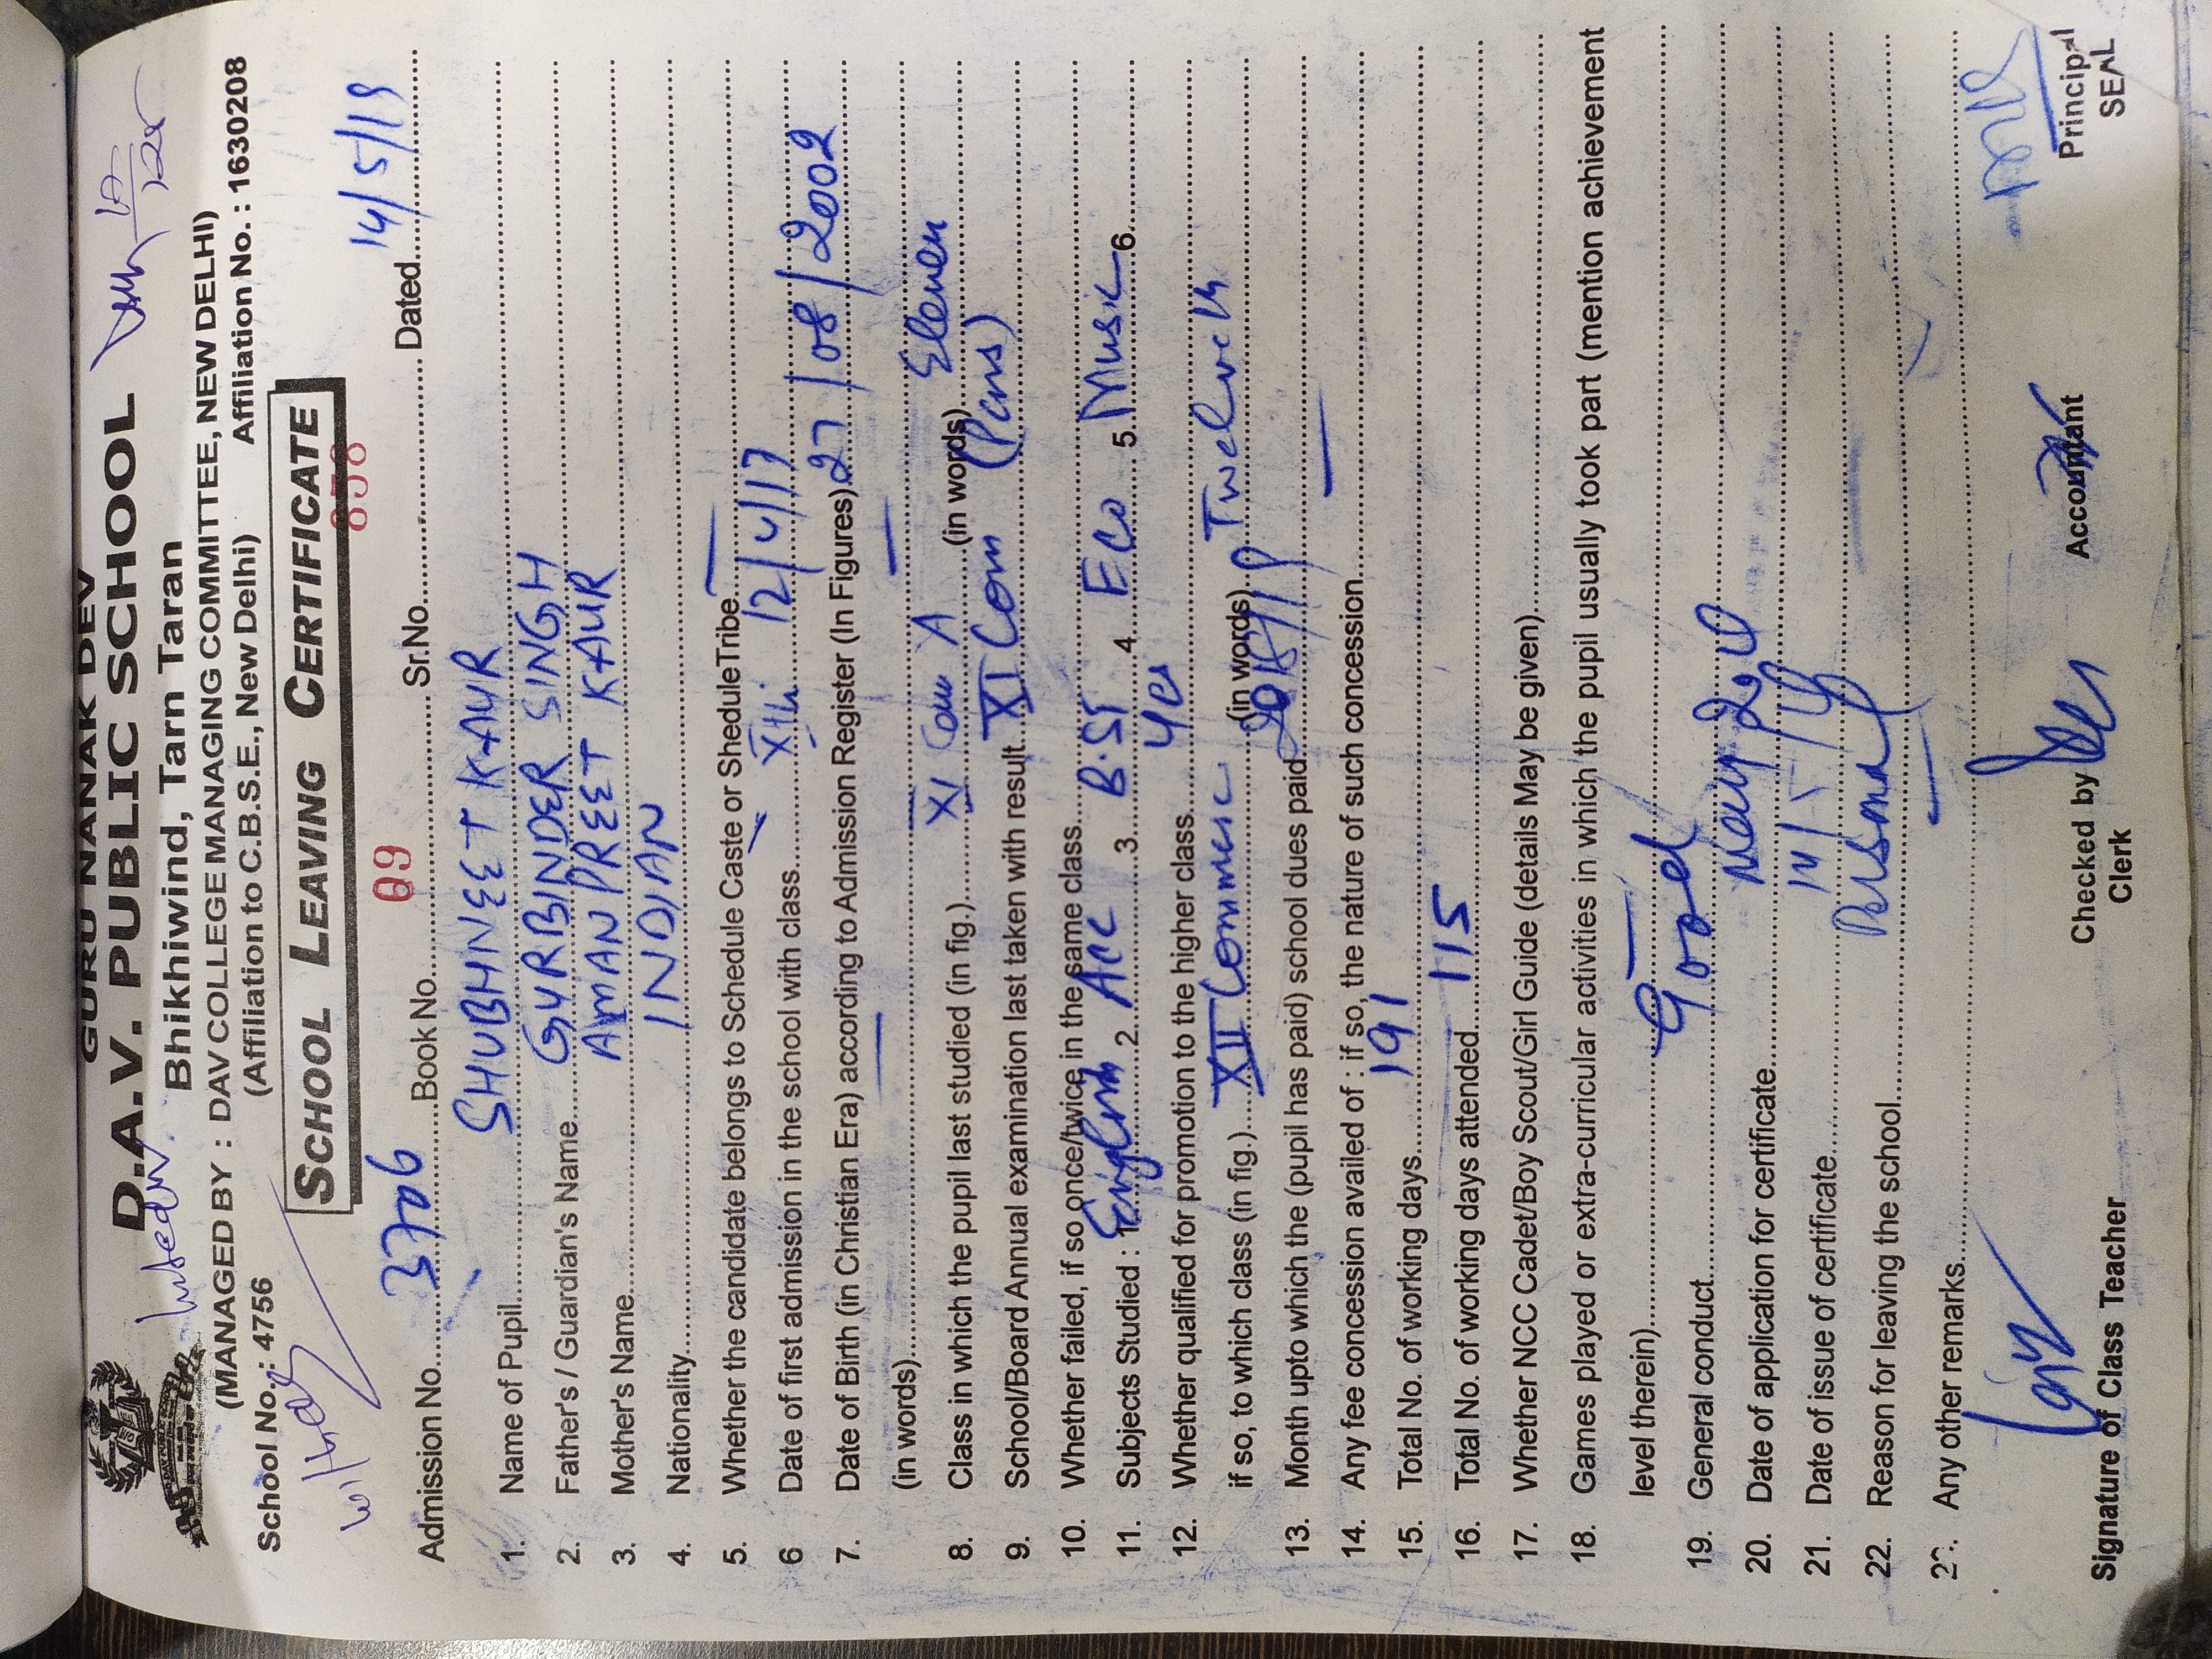 GURU NANAK DEV
D.A.V. PUBLIC SCHOOL
Bhikhiwind, Tarn Taran
(MANAGED BY : DAV COLLEGE MANAGING COMMITTEE, NEW DELHI)
School No.: 4756 (Affiliation to C.B.S.E., New Delhi) Affiliation No. : 1630208
SCHOOL LEAVING CERTIFICATE
Admission No. 3706 Book No. 09 Sr.No. 858 Dated 14/5/19
1. Name of Pupil SHUBHNEET KAUR
2. Father's / Guardian's Name GURBINDER SINGH
3. Mother's Name AMANPREET KAUR
4. Nationality INDIAN
5. Whether the candidate belongs to Schedule Caste or SheduleTribe —
6 Date of first admission in the school with class Xth 12/4/17
7. Date of Birth (in Christian Era) according to Admission Register (In Figures) 27/08/2002
(in words) — —
8. Class in which the pupil last studied (in fig.) XI Com A (in words) Eleven
9. School/Board Annual examination last taken with result XI Com (Pass)
10. Whether failed, if so once/twice in the same class
11. Subjects Studied : 1 English 2 Acc 3 B.ST 4 Eco 5 Music 6
12. Whether qualified for promotion to the higher class Yes
if so, to which class (in fig.) XII Commerce (in words) Twelveth
13. Month upto which the (pupil has paid) school dues paid
14. Any fee concession availed of : if so, the nature of such concession —
15. Total No. of working days 191
16. Total No. of working days attended 115
17. Whether NCC Cadet/Boy Scout/Girl Guide (details May be given)
18. Games played or extra-curricular activities in which the pupil usually took part (mention achievement
level therein) —
19. General conduct Good
20. Date of application for certificate May
21. Date of issue of certificate 14/5/19
22. Reason for leaving the school Personal
23. Any other remarks —
Signature of Class Teacher Checked by Accountant Principal
Clerk SEAL